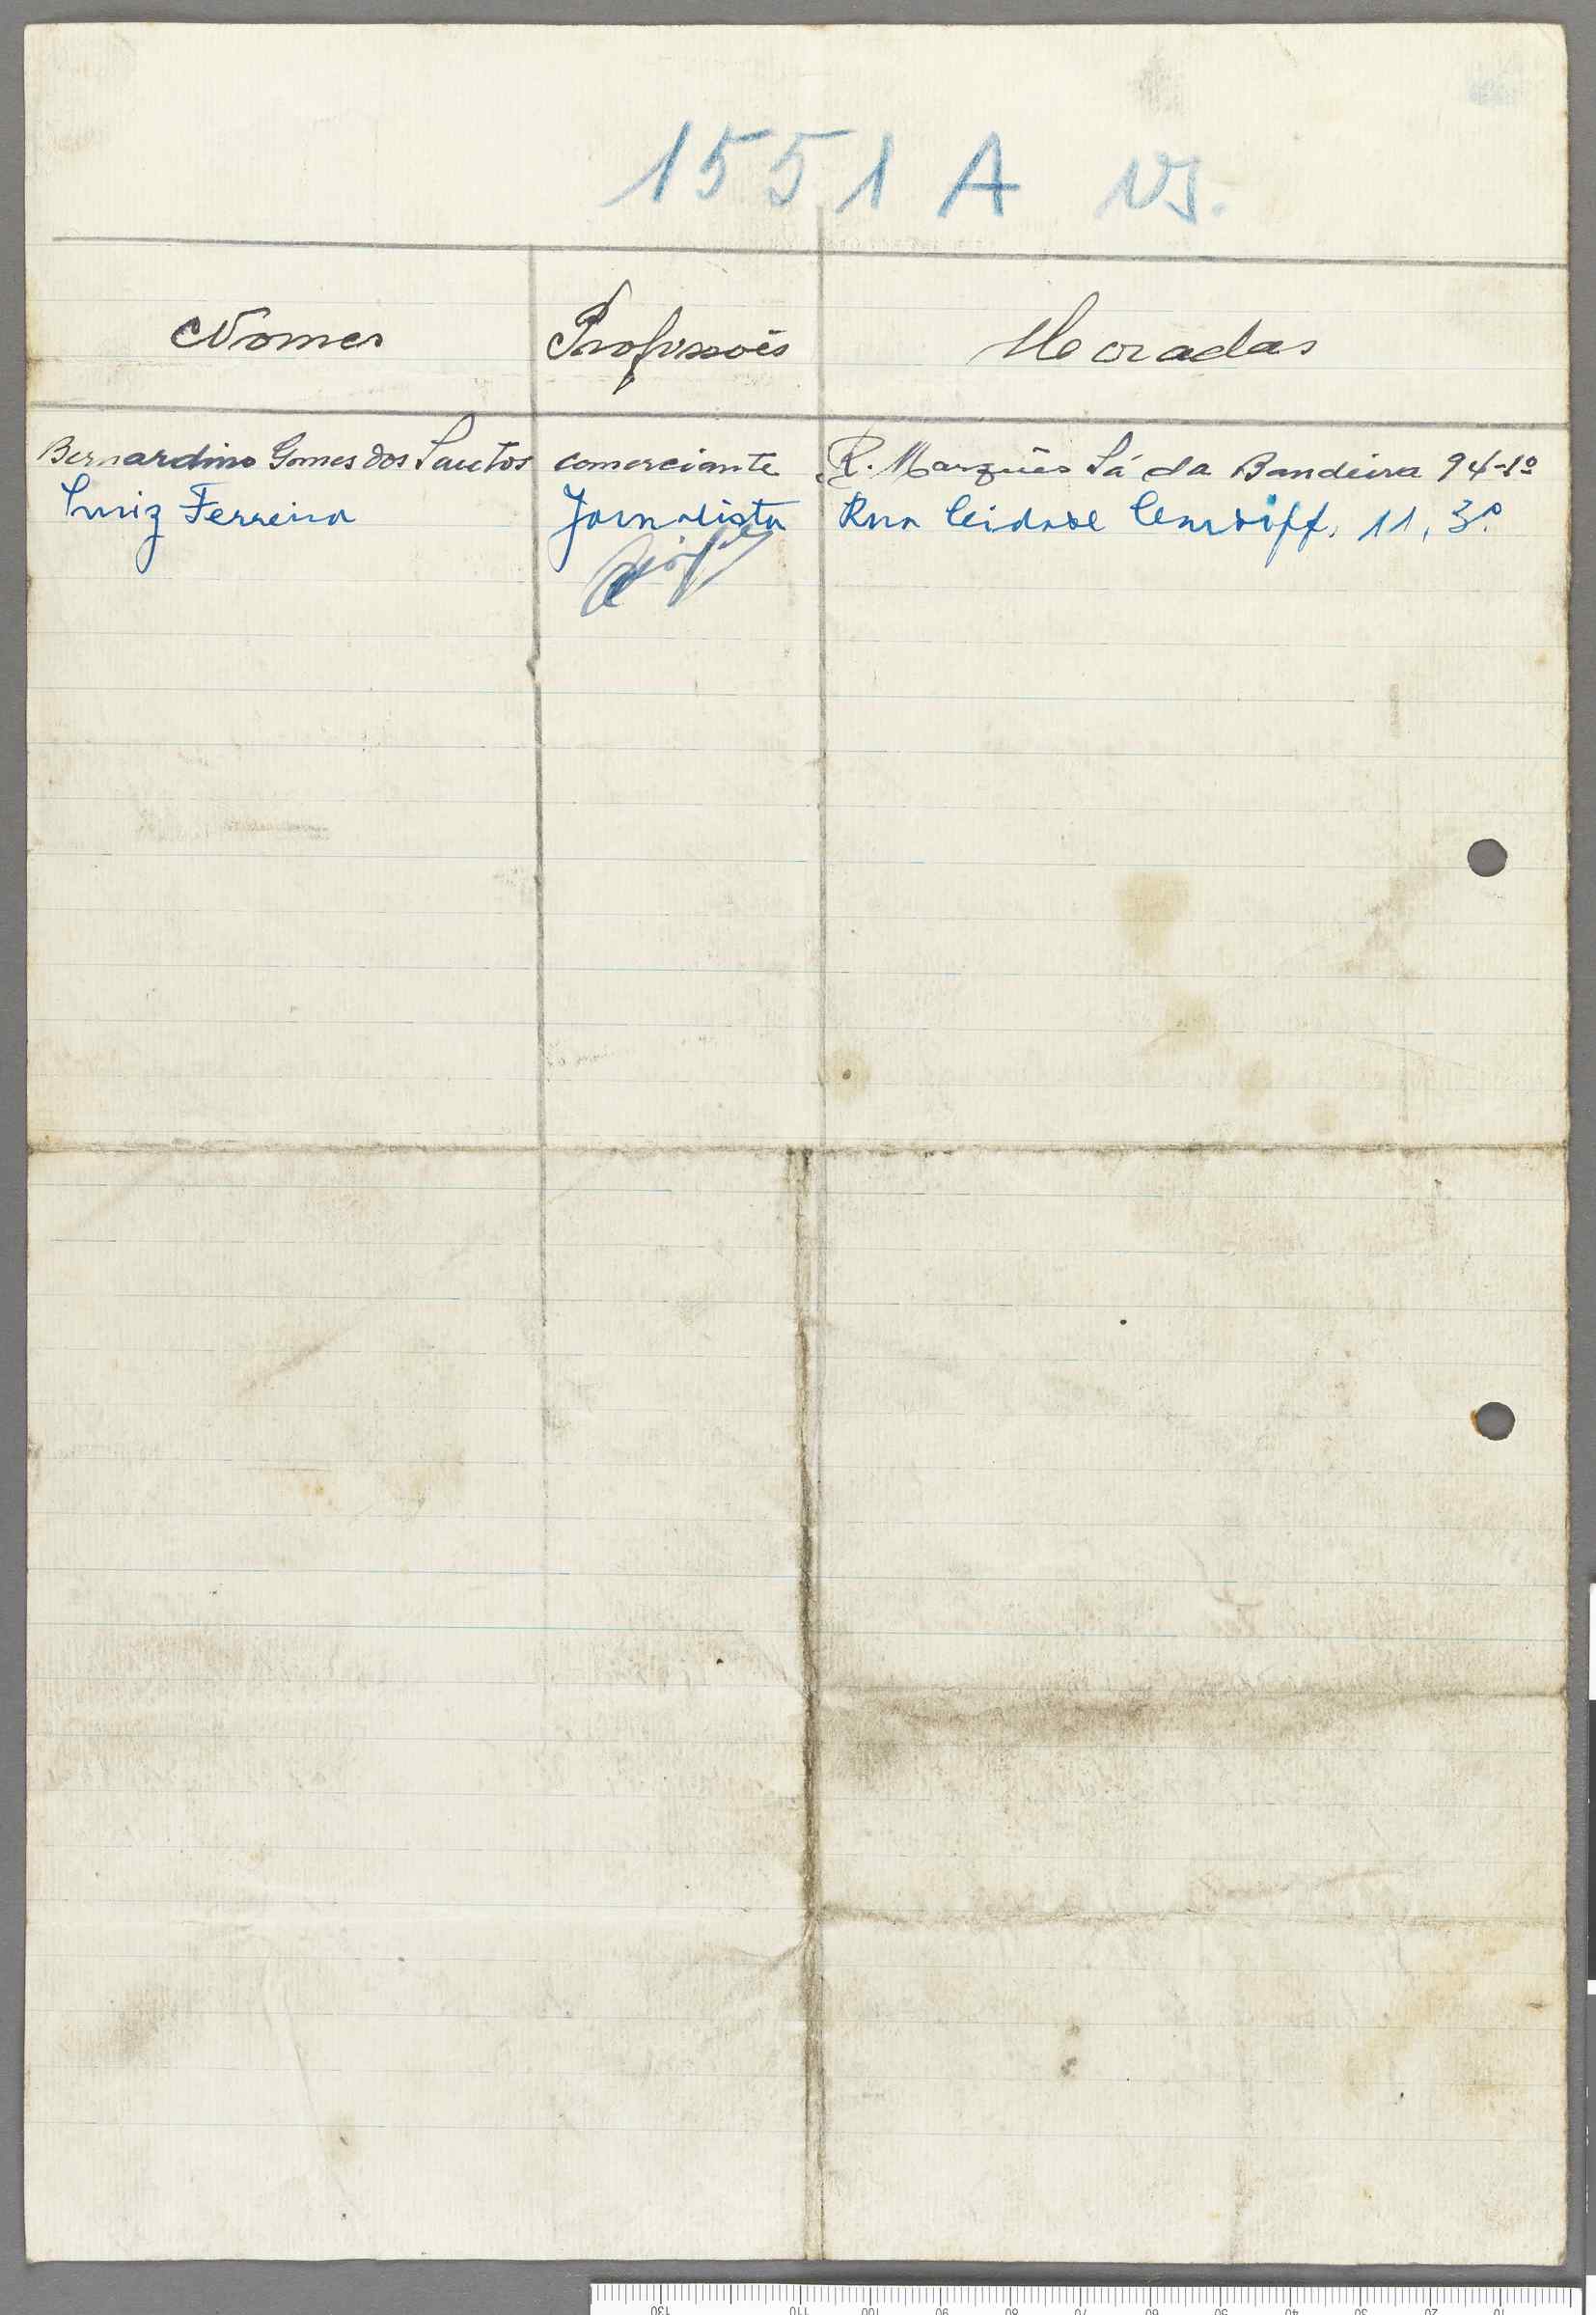 1551 A VS.
Nomes Profissões Moradas
Bernardino Gomes dos Santos comerciante R. Marquês Sá da Bandeira 94-1º
Luiz Ferreira Jornalista Rua Cidade Cardiff, 11, 3º